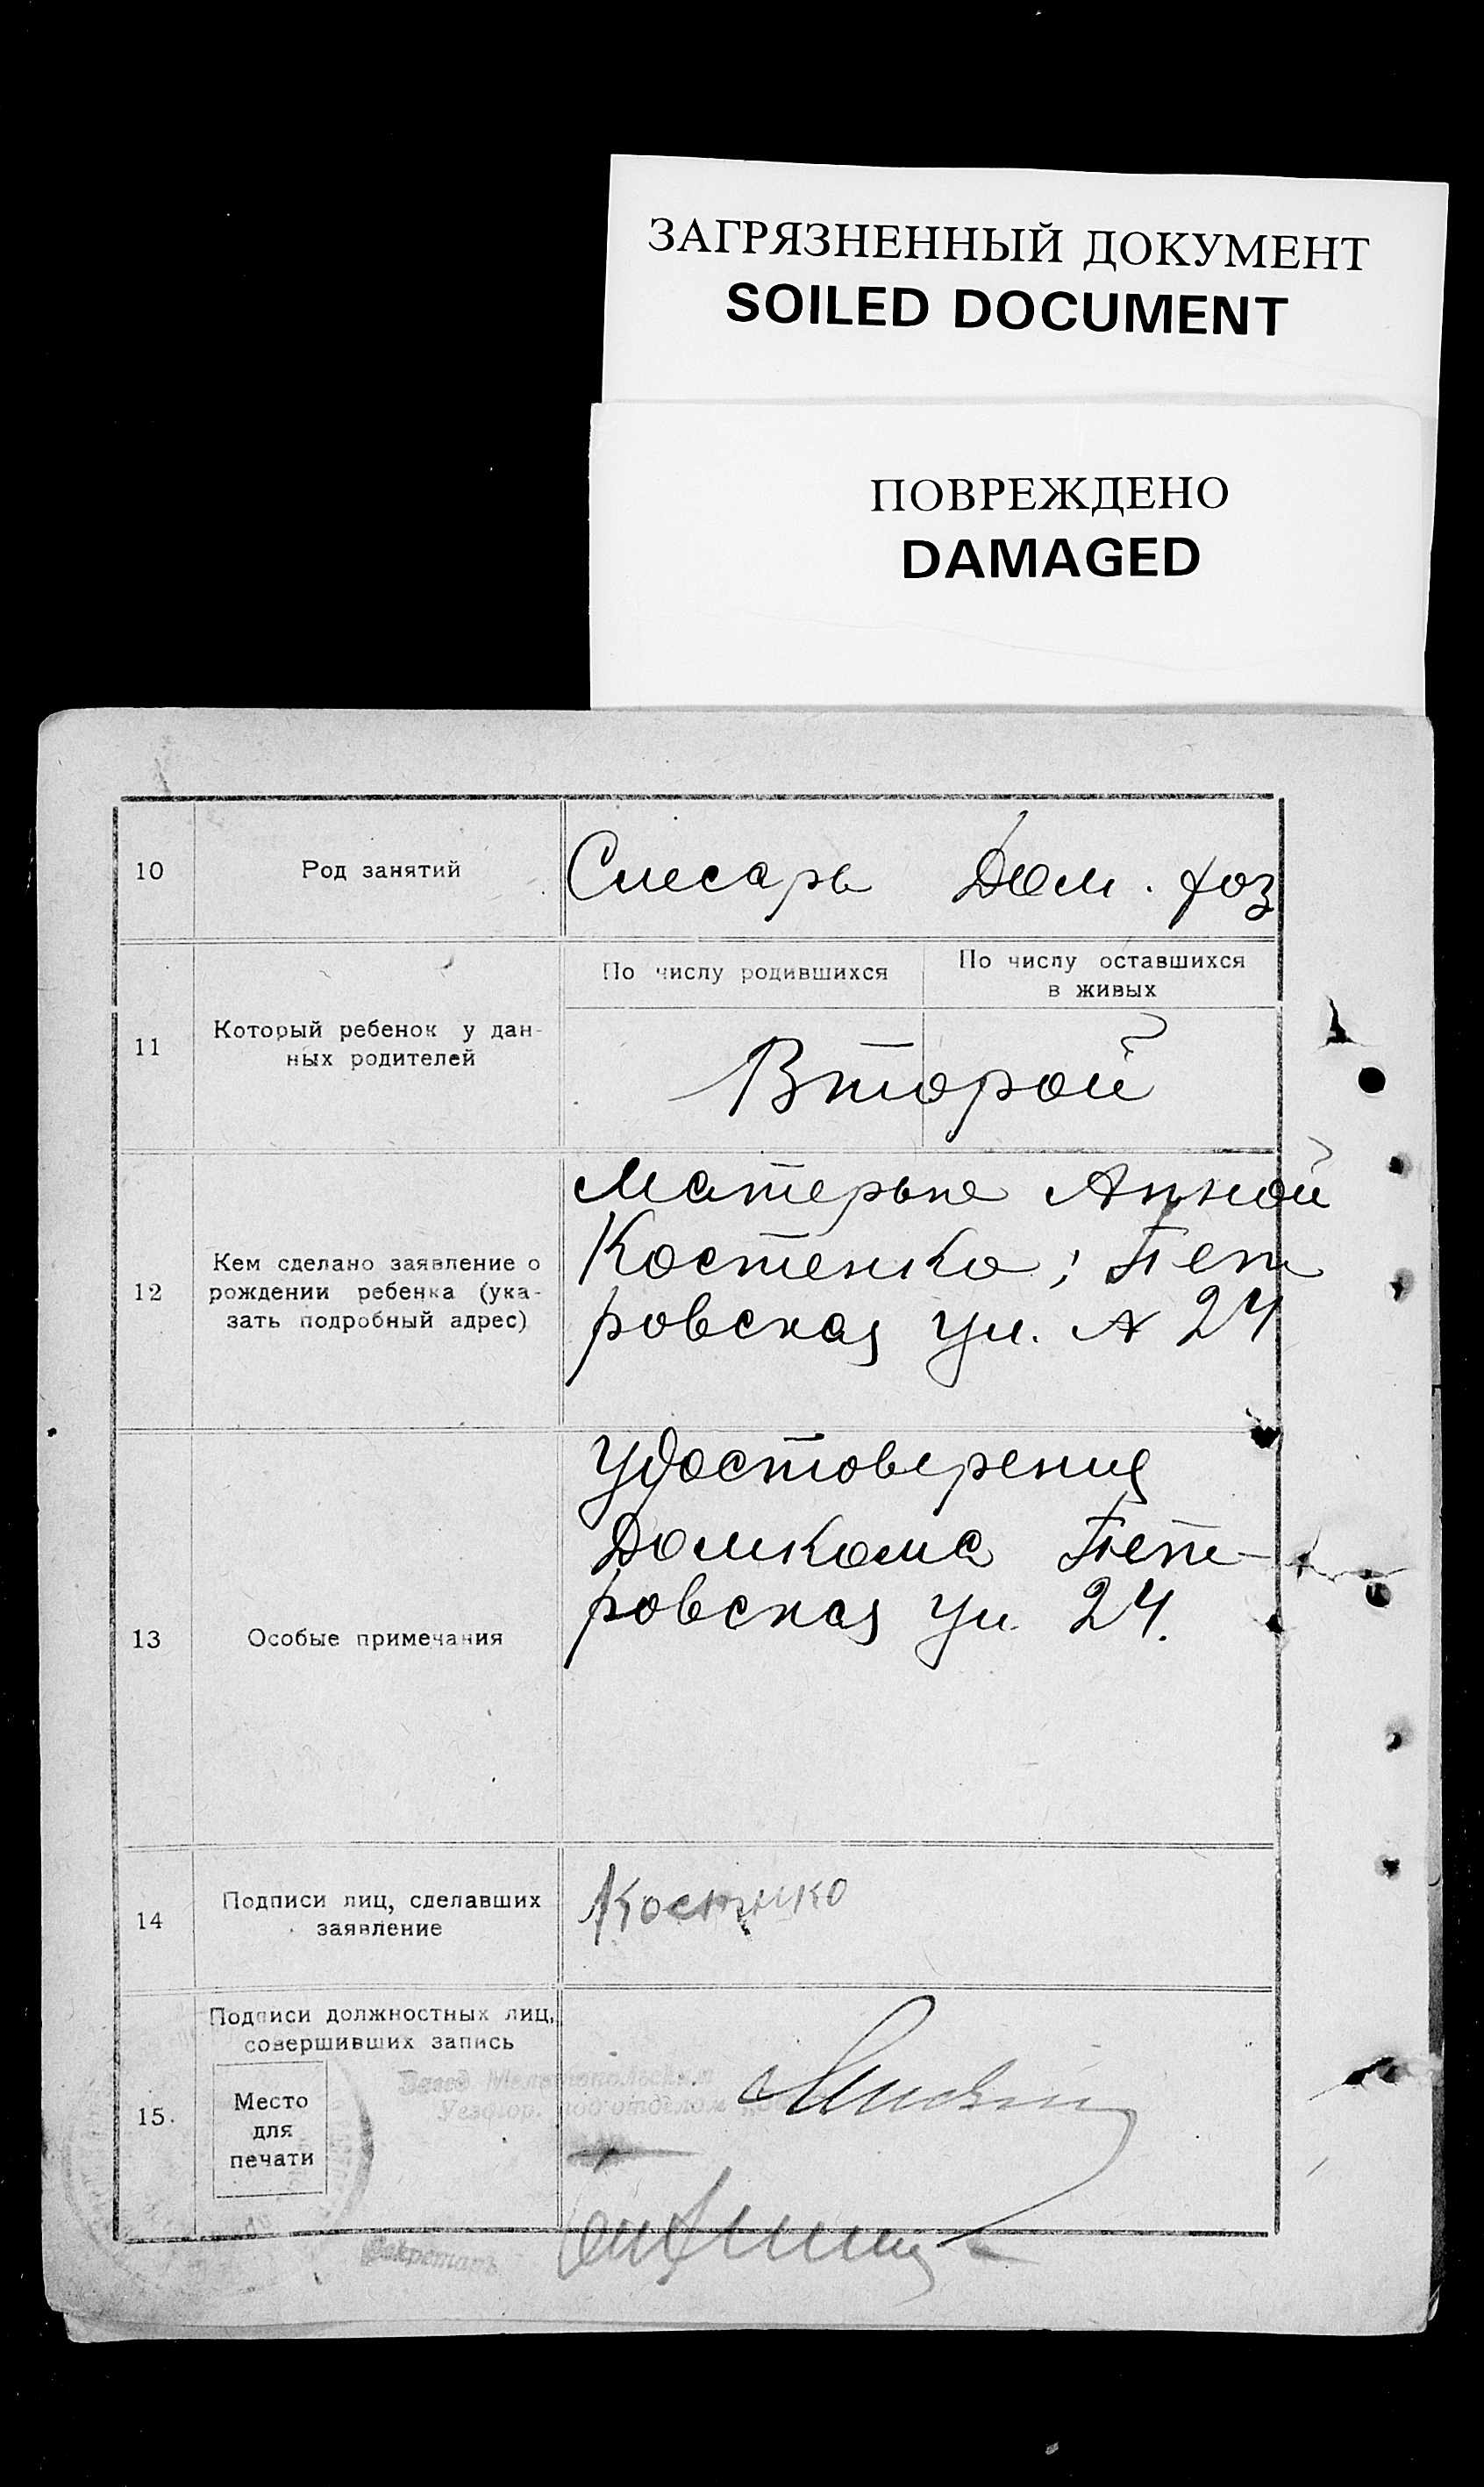 ЗАГРЯЗНЕННЫЙ ДОКУМЕНТ
SOILED DOCUMENT
ПОВРЕЖДЕНО
DAMAGED
10
Род занятий
Слесарь Дом. хоз
11
Который ребенок у дан-
ных родителей
По числу родившихся
По числу оставшихся
в живых
Второй
12
Кем сделано заявление о
рождении ребенка (ука-
зать подробный адрес)
Матерью Анной
Костенко; Пет
ровская ул. № 24
13
Особые примечания
Удостоверения
Домкома Пет-
ровская ул. 24.
14
Подписи лиц, сделавших
заявление
Костнко
15.
Подписи должностных лиц,
совершивших запись
Место
для
печати
Завед Мелитопольским
Уездгор. подотделом
Секретарь